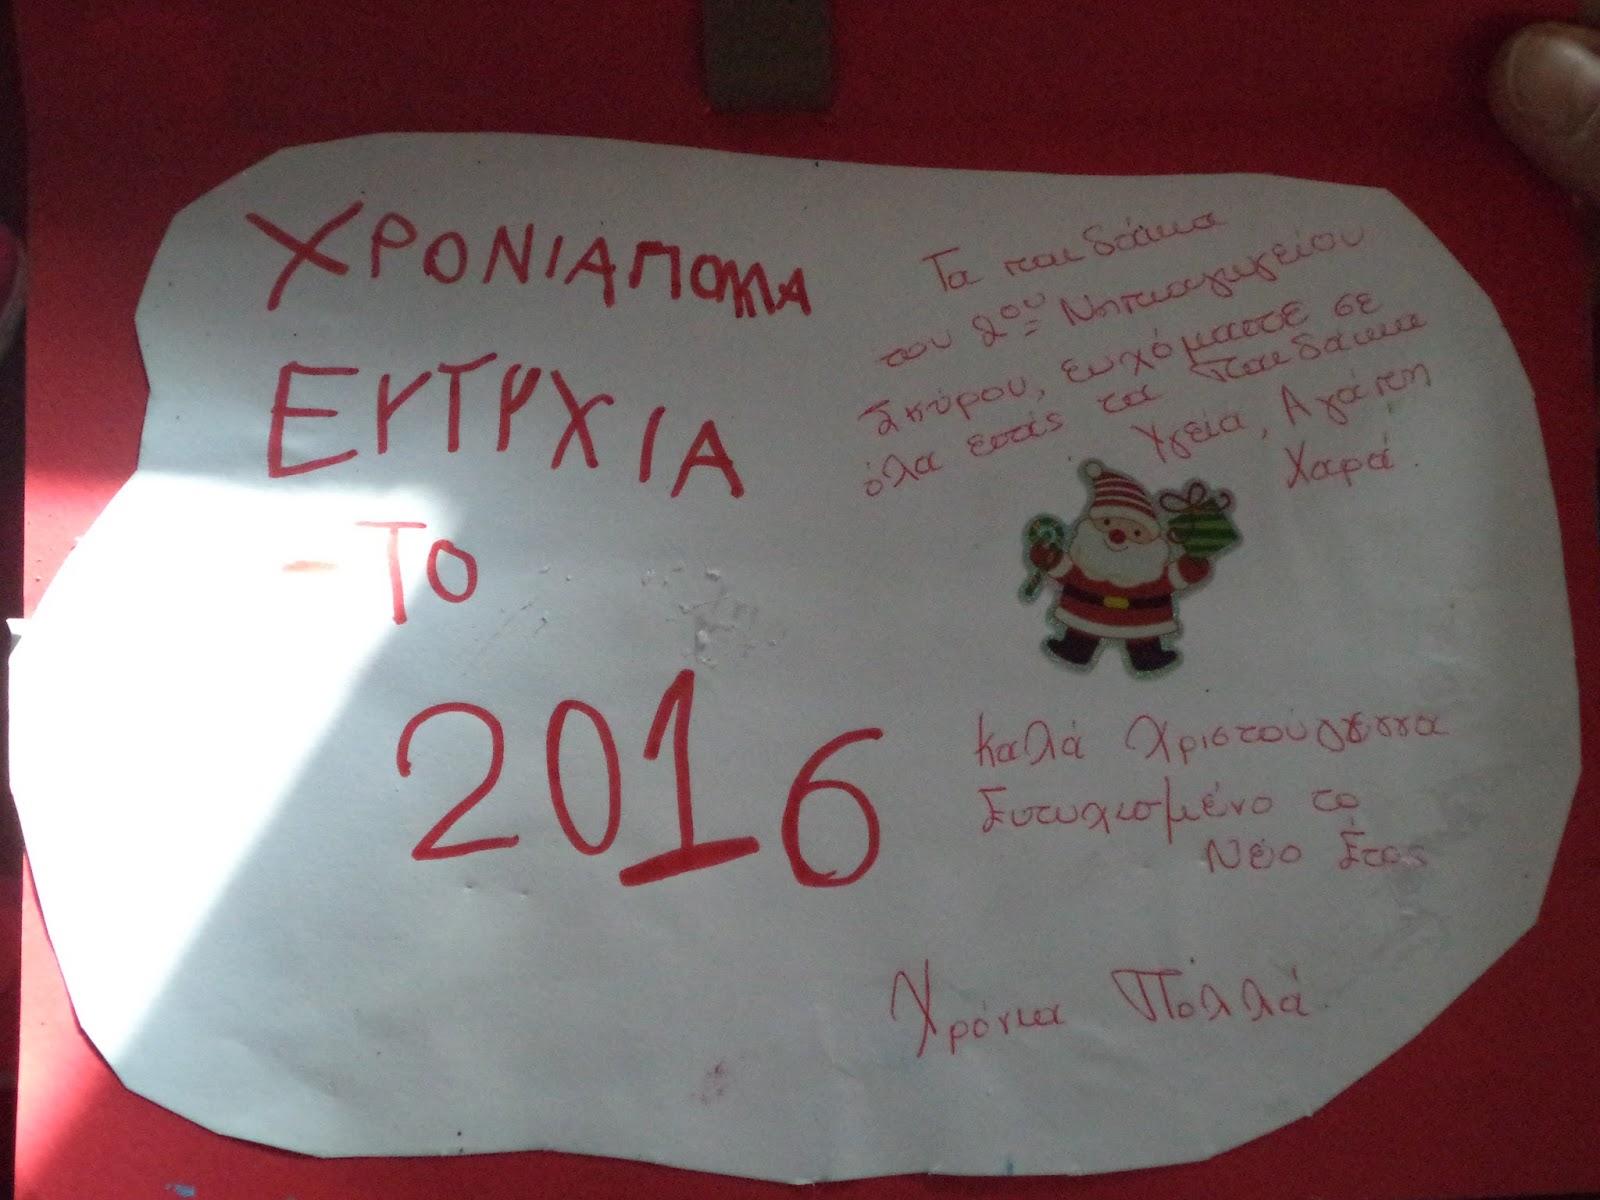 ΧΡΟΝΙΑΠΟΛΛΑ
ΕΥΤΥΧΙΑ
ΤΟ
2016
Τα παιδάκια
του 2ου Νηπιαγωγείου
Σκύρου, ευχόμαστε σε
όλα εσάς τα παιδάκια
Υγεία, Αγάπη
Χαρά.
Καλά Χριστούγεννα
Ευτυχισμένο το
Νέο Έτος
Χρόνια Πολλά.